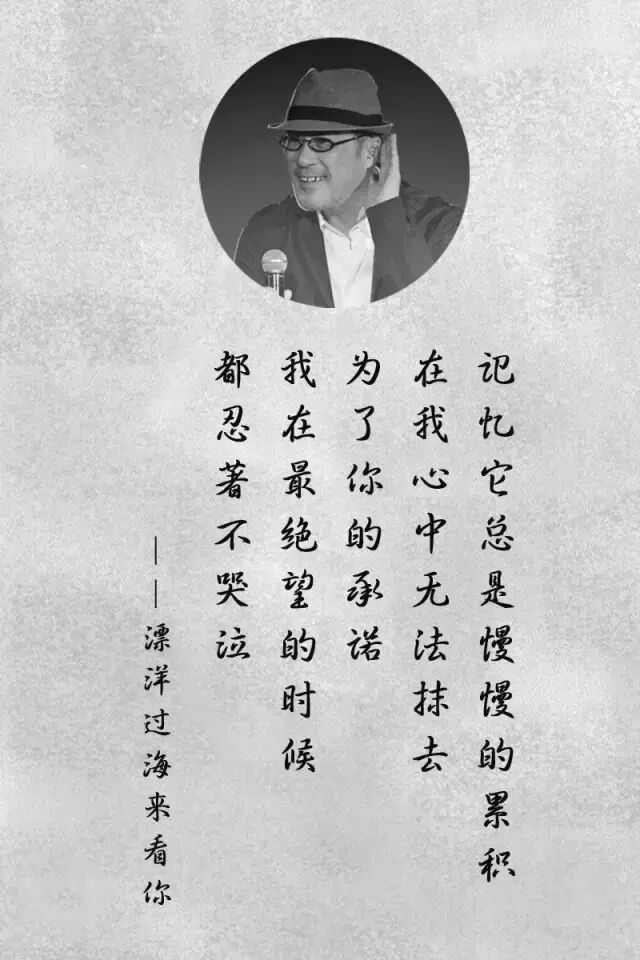 记忆它总是慢慢的累积
在我心中无法抹去
为了你的承诺
我在最绝望的时候
都忍著不哭泣
——漂洋过海来看你